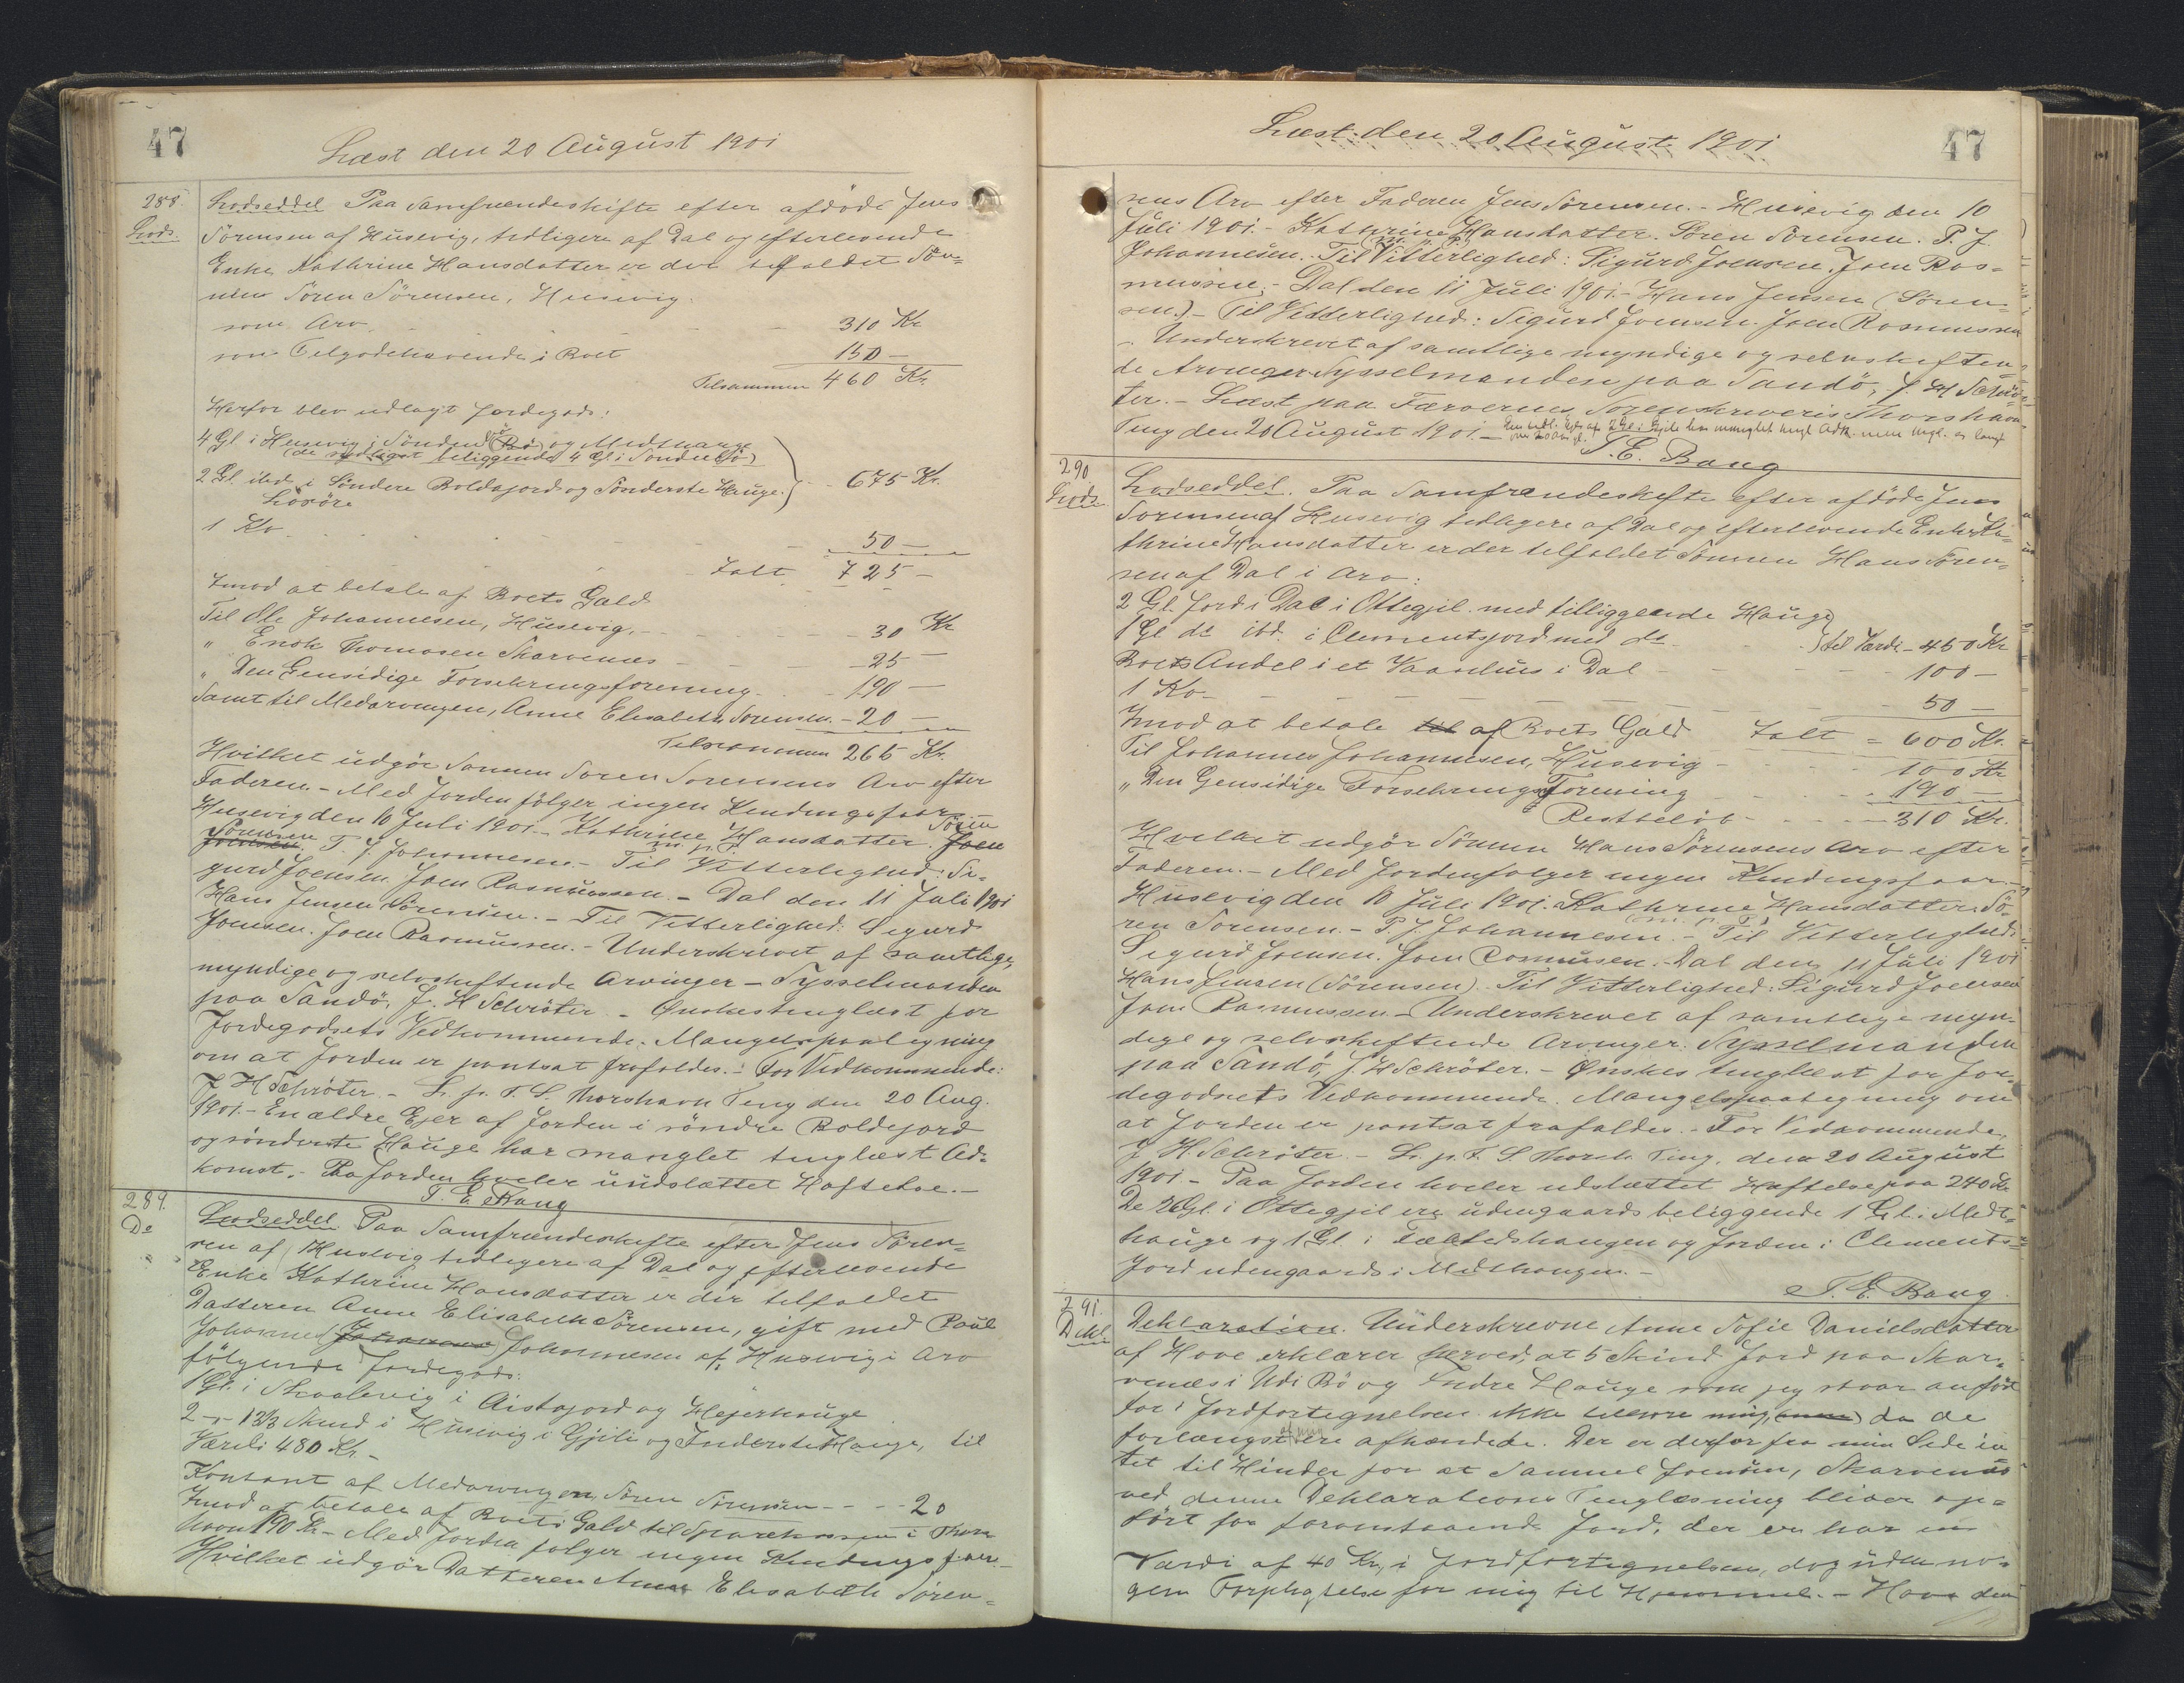 47
Læst den 20 August 1901
288.
Lods.
Lodseddel Paa Samfrændeskifte efter afdöde Jens
Sörensen af Husevig, tidligere af Dal og efterlevende
Enke Kathrine Hansdatter er der tilfaldet Sön-
nen Sören Sörensen, Husevig.
som Arv 310 Kr
som Tilgodehavende i Boet 150 —
Tilsammen 460 Kr.
Herfor blev udlagt Jordegods:
4 Gl. i Husevig i Sönden Bö og Midthauge
(de sydligst beliggende 4 Gl. i Sönden Bö)
2 Gl. ibd. i Söndere Boldajord og Sönderste Hauge. 675 Kr.
Lösöre
1 Ko 50 —
Ialt 725 —
Imod at betale af Boets Gæld
Til Ole Johannesen, Husevig, 30 Kr
" Enok Thomasen Skarvenæs 25 —
" Den Gensidige Forsikringsforening 190 —
Samt til Medarvingen, Anne Elisabeth Sörensen 20 —
Tilsammen 265 Kr.
Hvilket udgör Sönnen Sören Sörensens Arv efter
Faderen. — Med Jorden fölger ingen Kendingsfaar.
Husevig den 10 Juli 1901. — Kathrine Hansdatter. Joen Sören
m. p. P.
Joensen Sörensen P. J. Johannesen. — Til Vitterlighed: Si-
gurd Joensen. Joen Rasmussen. — Dal den 11 Juli 1901
Hans Jensen Sörensen. — Til Vitterlighed: Sigurd
Joensen. Joen Rasmussen. — Underskrevet af samtlige
myndige og selvskiftende Arvinger — Sysselmanden
paa Sandö, J. H Schröter. — Önskes tinglæst for
Jordegodsets Vedkommende. Mangelspaategning
om at Jorden er pantsat frafaldes. — For Vedkommende:
J H Schröter. — L. p. F. S. Thorshavn Ting den 20 Aug.
1901. — En ældre Ejer af Jorden i söndre Boldejord
og sönderste Hauge har manglet tinglæst Ad-
komst. — Paa Jorden hviler uudslettet Hæftelse. —
T. E. Bang
289.
Do
Lodseddel. Paa Samfrændeskifte efter Jens Sören-
sen af Husevig tidligere af Dal og efterlevende
Enke Kathrine Hansdatter er der tilfaldet
Datteren Anne Elisabeth Sörensen, gift med Poul
Johannes Johannesen af Husevig i Arv
fölgende Jordegods:
1 Gl. i Skaalevig i Aistajord og Hejerhauge
2 — 13⅓ Skind i Husevig i Gjili og Inderste Hauge, til
Værdi 480 Kr. —
Kontant af Medarvingen, Sören Sörensen — — — 20
Imod at betale af Boets Gæld til Sparekassen i Thors
havn 190 Kr. — Med Jorden fölger ingen Kendingsfaar
Hvilket udgör Datteren Anne Elisabeth Sören-
Læst den 20 August 1901
47
sens Arv efter Faderen Jens Sörensen. — Husevig den 10
Juli 1901. — Kathrine Hansdatter. Sören Sörensen. P. J
m. p. P.
Johannesen. Til Vitterlighed: Sigurd Joensen. Joen Ras-
mussen. — Dal den 11 Juli 1901. — Hans Jensen (Sören-
sen.) — Til Vitterlighed: Sigurd Joensen. Joen Rasmussen
— Underskrevet af samtlige myndige og selvskiften-
de Arvinger. Sysselmanden paa Sandö, J. H Schrö-
ter. — Læst paa Færoernes Sorenskriveris Thorshavn
Ting den 20 August 1901. —
T. E. Bang
290
Lods.
Lodseddel. Paa Samfrændeskifte efter afdöde Jens
Sörensen af Husevig tidligere af Dal og efterlevende Enke Ka-
thrine Hansdatter er der tilfaldet Sönnen Hans Sören-
sen af Dal i Arv:
2 Gl. Jord i Dal i Ottegjil med tilliggende Hauge
1 Gl do ibd. i Clementsjord med do til Værdi - 450 Kr
Boets Andel i et Vaanhus i Dal 100 —
1 Ko 50 —
Ialt = 600 Kr.
Imod at betale til af Boets Gæld
Til Johannes Johannesen, Husevig 100 Kr
" Den Gensidige Forsikrings Forening 190 —
Restbelöb 310 Kr.
Hvilket udgör Sönnen Hans Sörensens Arv efter
Faderen. — Med Jorden fölger ingen Kendingsfaar. —
Husevig den 10 Juli 1901. Kathrine Hansdatter. Sö-
(m. p. P.)
ren Sörensen. — P. J. Johannesen. — Til Vitterlighed:
Sigurd Joensen. Joen Rasmussen. Dal den 11 Juli 1901
Hans Jensen (Sörensen). Til Vitterlighed: Sigurd Joensen
Joen Rasmussen — Underskrevet af samtlige myn-
dige og selvskiftende Arvinger. Sysselmanden
paa Sandö, J. H Schröter. — Önskes tinglæst for Jor-
degodsets Vedkommende. Mangelspaategning om
at Jorden er pantsat frafaldes. — For Vedkommende,
J H. Schröter. — L. p. F. S. Thorsh. Ting. den 20 August
1901 — Paa Jorden hviler udslettet Hæftelse paa 240 Kr
De 2 Gl. i Ottegjil ere udengaards beliggende 1 Gl. i Midt-
hauge og 1 Gl i Fæetedshaugen og Jorden i Clements-
jord udengaards i Midthaugen. —
T. E. Bang.
291.
Dekl.
Deklaration. Underskrevne Anne Sofie Danielsdatter
af Hove erklærer herved, at 5 Skind Jord paa Skar-
venæs i Udi Bö og Indre Hauge som jeg staar anfört
for i Jordfortegnelsen ikke tilhöre mig, men da de
forlængst ere afhændede. Der er derfor fra min Side in
tet til Hinder for at Samuel Joensen, Skarvenæs
ved denne Deklarations Tinglæsning bliver op-
fört for foranstaaende Jord, der er har en
Værdi af 40 Kr, i Jordfortegnelsen, dog uden no-
gen Forpligtelse for mig til Hjemmel. — Hove den